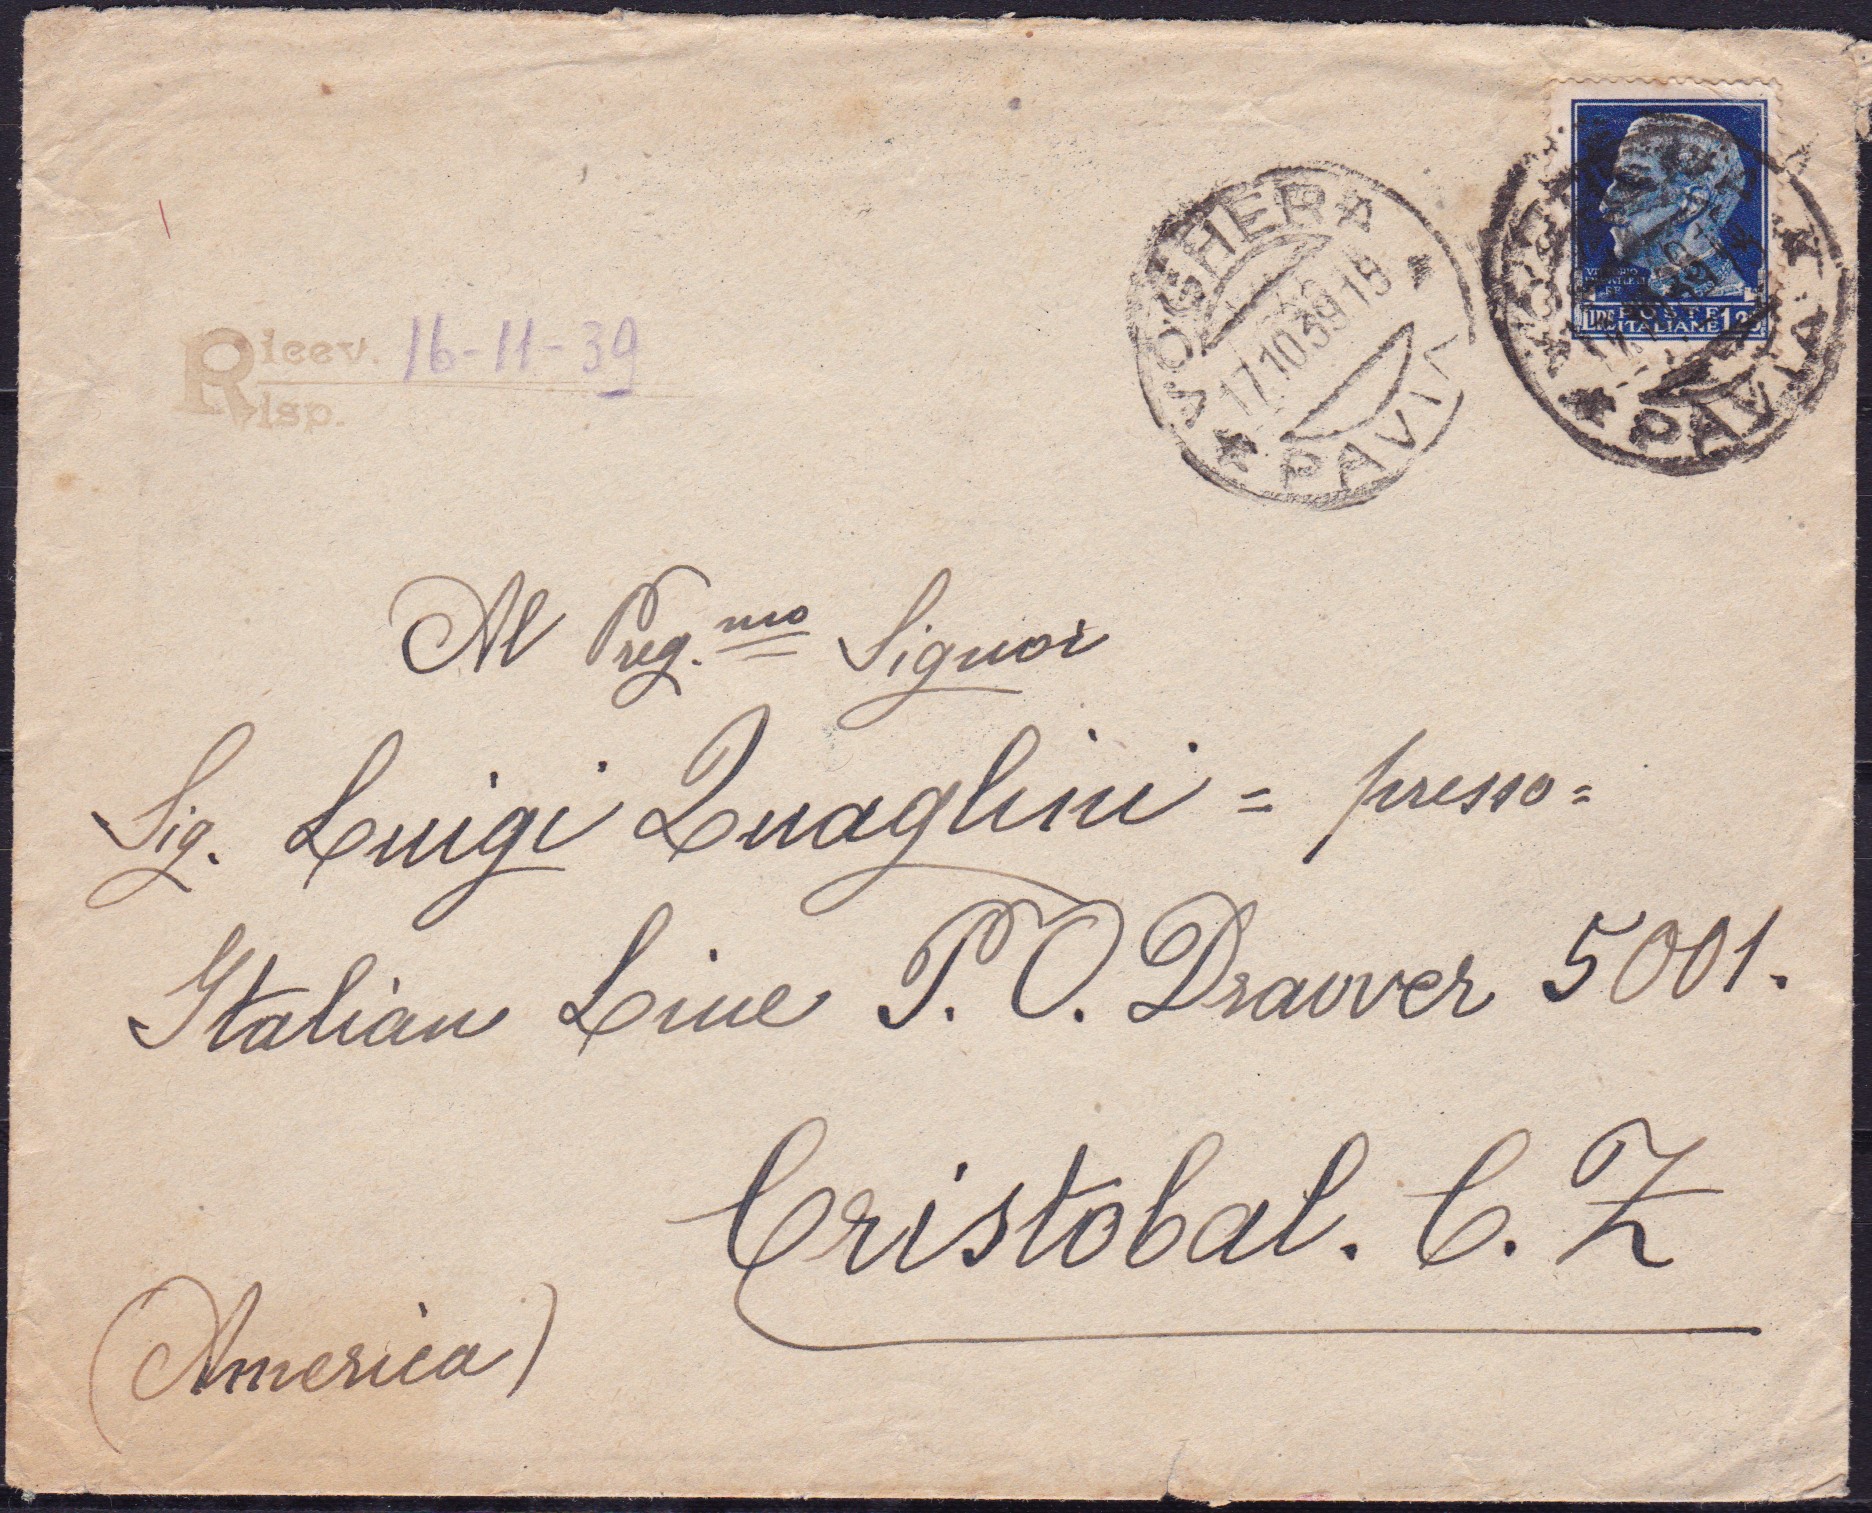 VITTORIO
LIRE POSTE ITALIANE 1.25
VOGHERA
17.10.39.19
* PAVIA *
VOGHERA
* PAVIA *
Ricev. 16-11-39
Risp.
Al Preg.mo Signor
Sig. Luigi Quaglini = presso =
Italian Line P. O. Drawer 5001.
Cristobal. C. Z
(America)